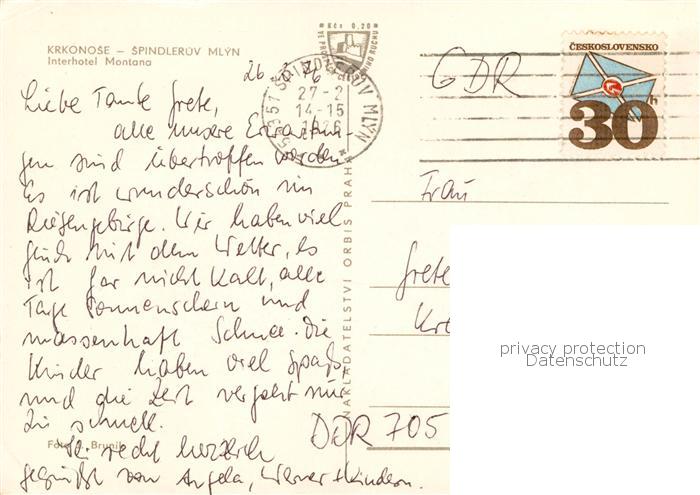 KRKONOŠE – ŠPINDLERŮV MLÝN
Interhotel Montana
Kčs 0,20
26.2.76
Liebe Tante Grete,
alle unsere Erwartun-
gen sind übertroffen worden
Es ist wunderschön im
Riesengebirge. Wir haben viel
Glück mit dem Wetter, es
ist gar nicht kalt, alle
Tage Sonnenschein und
massenhaft Schnee. Die
Kinder haben viel Spaß
und die Zeit vergeht nur
zu schnell.
Sei recht herzlich
gegrüßt von Angela, Werner + Kindern.
Foto Brunik
NAKLADATELSTVÍ ORBIS PRAHA
54351 ŠPINDLERŮV MLÝN
27-2
14-15
1976
ČESKOSLOVENSKO
30h
GDR
Frau
Grete
DDR 705
privacy protection
Datenschutz